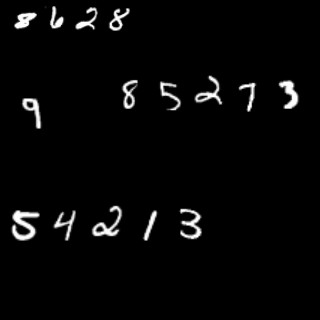 8628
9 85273
54213